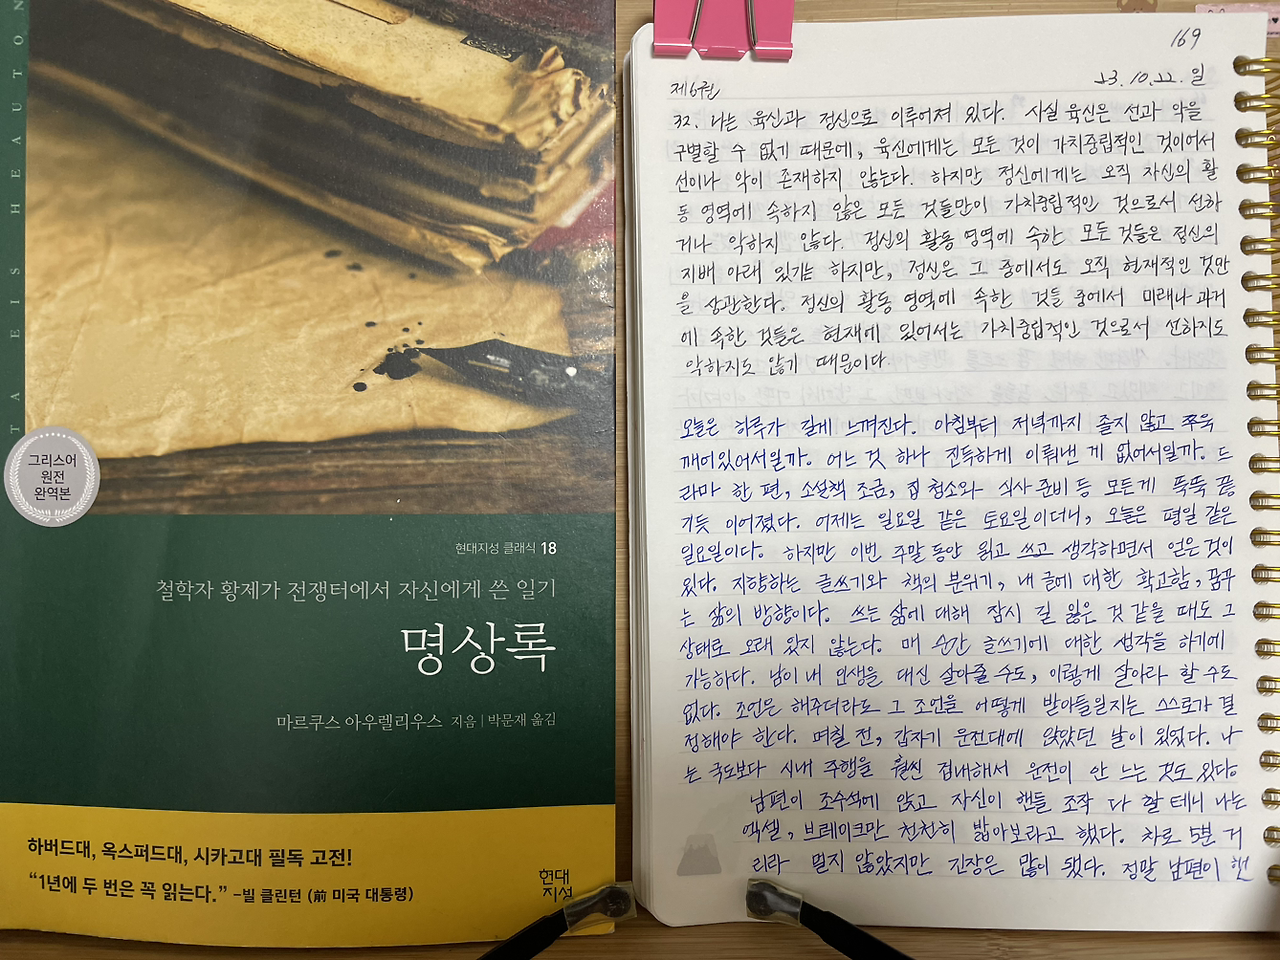 TA EIS HEAUTON
그리스어
원전
완역본
현대지성 클래식 18
철학자 황제가 전쟁터에서 자신에게 쓴 일기
명상록
마르쿠스 아우렐리우스 지음 | 박문재 옮김
하버드대, 옥스퍼드대, 시카고대 필독 고전!
“1년에 두 번은 꼭 읽는다.” –빌 클린턴 (前 미국 대통령)
현대
지성
169
제6권
23. 10. 22. 일
32. 나는 육신과 정신으로 이루어져 있다. 사실 육신은 선과 악을
구별할 수 없기 때문에, 육신에게는 모든 것이 가치중립적인 것이어서
선이나 악이 존재하지 않는다. 하지만 정신에게는 오직 자신의 활
동 영역에 속하지 않은 모든 것들만이 가치중립적인 것으로서 선하
거나 악하지 않다. 정신의 활동 영역에 속한 모든 것들은 정신의
지배 아래 있기는 하지만, 정신은 그 중에서도 오직 현재적인 것만
을 상관한다. 정신의 활동 영역에 속한 것들 중에서 미래나 과거
에 속한 것들은 현재에 있어서는 가치중립적인 것으로서 선하지도
악하지도 않기 때문이다.
오늘은 하루가 길게 느껴진다. 아침부터 저녁까지 졸지 않고 쭈욱
깨어있어서일까. 어느 것 하나 진득하게 이뤄낸 게 없어서일까. 드
라마 한 편, 소설책 조금, 집 청소와 식사 준비 등 모든게 뚝뚝 끊
기듯 이어졌다. 어제는 일요일 같은 토요일이더니, 오늘은 평일 같은
일요일이다. 하지만 이번 주말 동안 읽고 쓰고 생각하면서 얻은 것이
있다. 지향하는 글쓰기와 책의 분위기, 내 글에 대한 확고함, 꿈꾸
는 삶의 방향이다. 쓰는 삶에 대해 잠시 길 잃은 것 같을 때도 그
상태로 오래 있지 않는다. 매 순간 글쓰기에 대한 생각을 하기에
가능하다. 남이 내 인생을 대신 살아줄 수도, 이렇게 살아라 할 수도
없다. 조언은 해주더라도 그 조언을 어떻게 받아들일지는 스스로가 결
정해야 한다. 며칠 전, 갑자기 운전대에 앉았던 날이 있었다. 나
는 국도보다 시내 주행을 훨씬 겁내해서 운전이 안 느는 것도 있다.
남편이 조수석에 앉고 자신이 핸들 조작 다 할 테니 나는
엑셀, 브레이크만 천천히 밟아보라고 했다. 차로 5분 거
리라 멀지 않았지만 긴장은 많이 됐다. 정말 남편이 핸